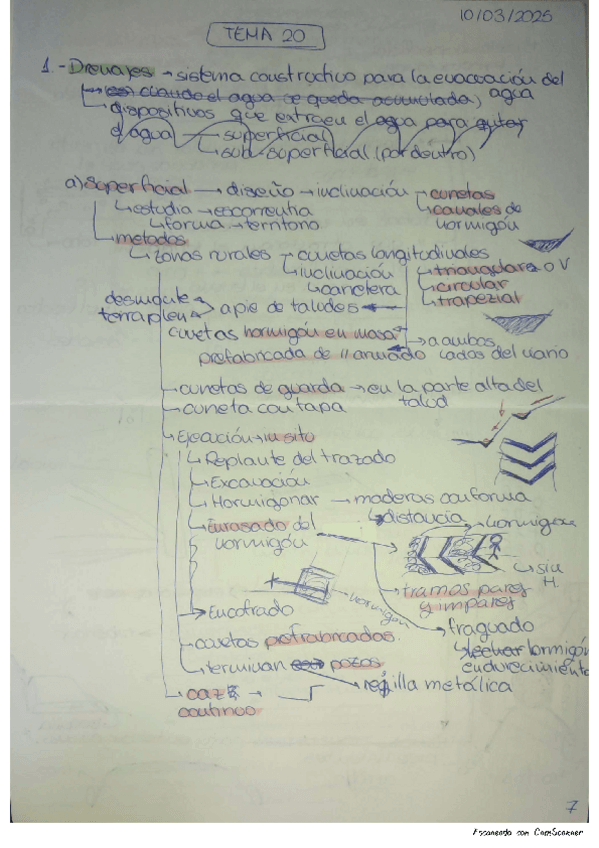 10/03/2025
TEMA 20
1.- Drenajes → sistema constructivo para la evacuación del agua
(es cuando el agua se queda acumulada)
dispositivos que extraen el agua para
el agua → superficial
sub-superficial (por dentro)
a) Superficial → diseño → inclinación → cunetas
estudia → escorrentia
canales de hormigón
forma → territorio
metodos
zonas rurales → cunetas longitudinales
inclinación
triangulares o V
carretera
circular
trapezial
desmonte
terraplen
a pie de taludes
cunetas hormigón en masa
prefabricada de " armado
a ambos lados del vario
cunetas de guarda → en la parte alta del talud
cuneta con tapa
Ejecución → in sito
Replante del trazado
Excavación
Hormigonar → maderas con forma
distancia → hormigon
Enrasado del hormigón
sin H.
tramos pares y impares
hormigón
Encofrado
fraguado
hormigón
endurecimiento
cunetas prefabricadas.
terminan pozos
rejilla metálica
caz →
continuo
7
Escaneado con CamScanner